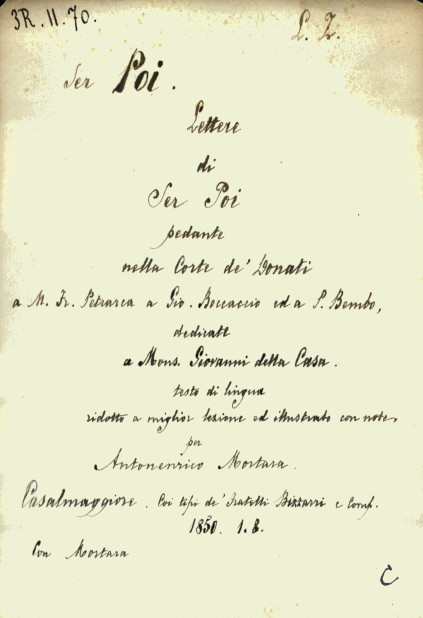 3R. II. 70.
L. Z.
Ser Poi.
Lettere
di
Ser Poi
pedante
nella Corte de' Donati
a M. Fr. Petrarca a Gio. Boccaccio ed a P. Bembo,
dedicate
a Mons. Giovanni della Casa.
testo di lingua
ridotto a miglior lezione ed illustrato con note,
per
Antonenrico Mortara.
Casalmaggiore. Coi tipi de' Fratelli Bizzarri e Comp.
1850. 1. 8.
Mortara
C